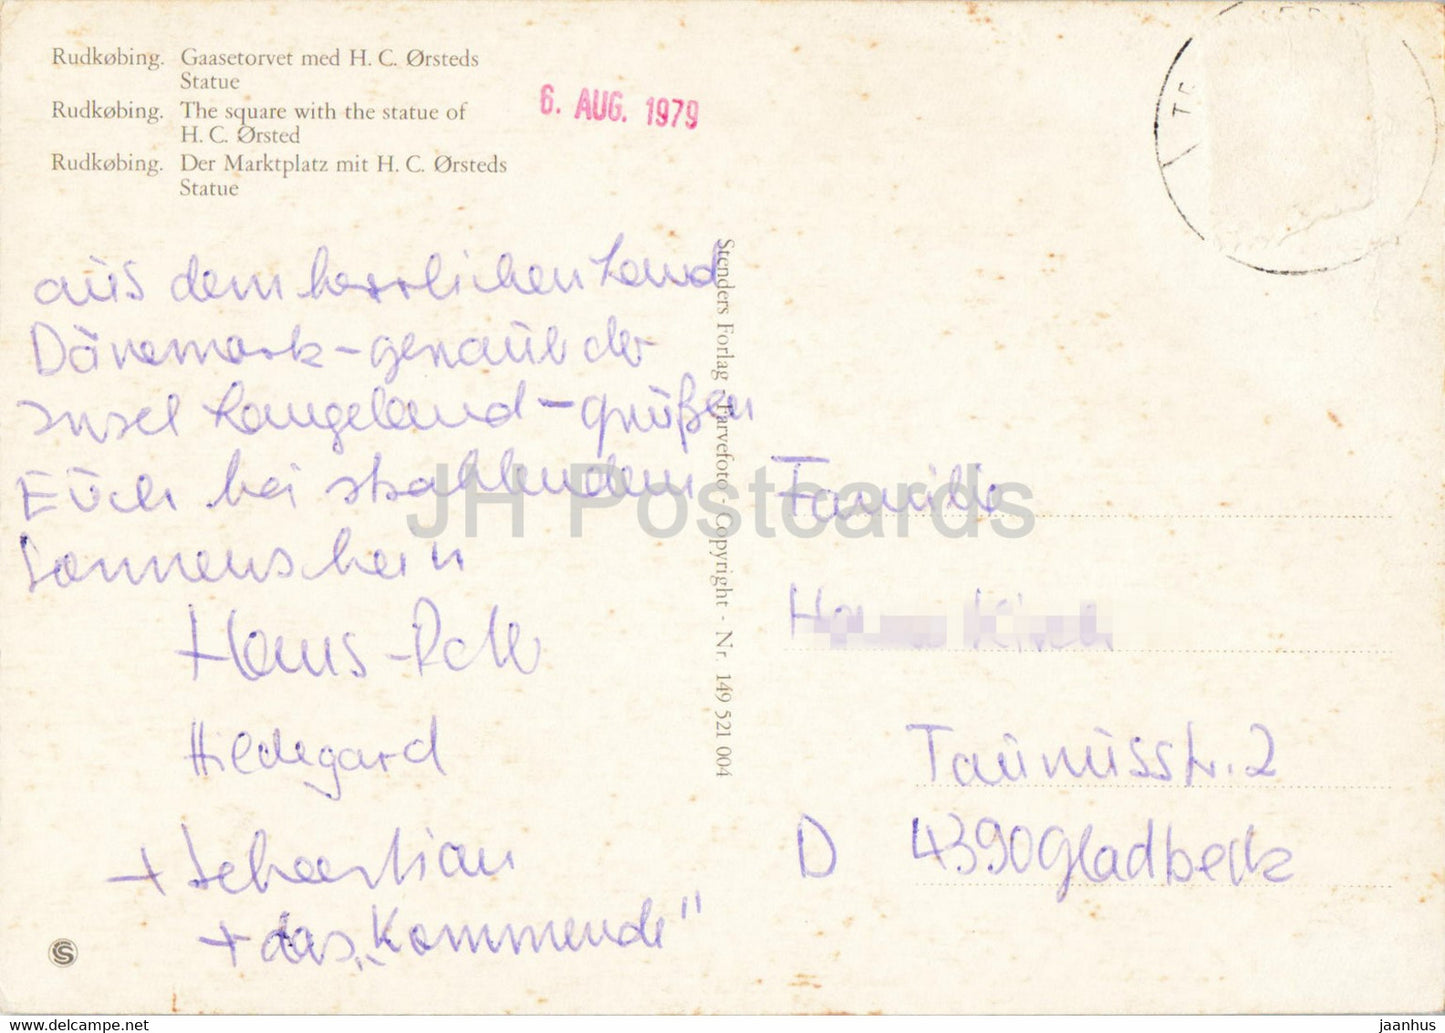 Rudkøbing. Gaasetorvet med H. C. Ørsteds
Statue
Rudkøbing. The square with the statue of
H. C. Ørsted
Rudkøbing. Der Marktplatz mit H. C. Ørsteds
Statue
6. AUG. 1979
aus dem herrlichen Land
Dänemark - genauer der
Insel Langeland - grüßen
Euch bei strahlendem
Sonnenschein
Hans-
Hildegard
+ Sebastian
+ das „Kommende"
Stenders Forlag - Farvefoto - Copyright - Nr. 149 521 004
Familie
Taunusstr. 2
D 4390 Gladbeck
JH Postcards
S
www.delcampe.net
jaanhus